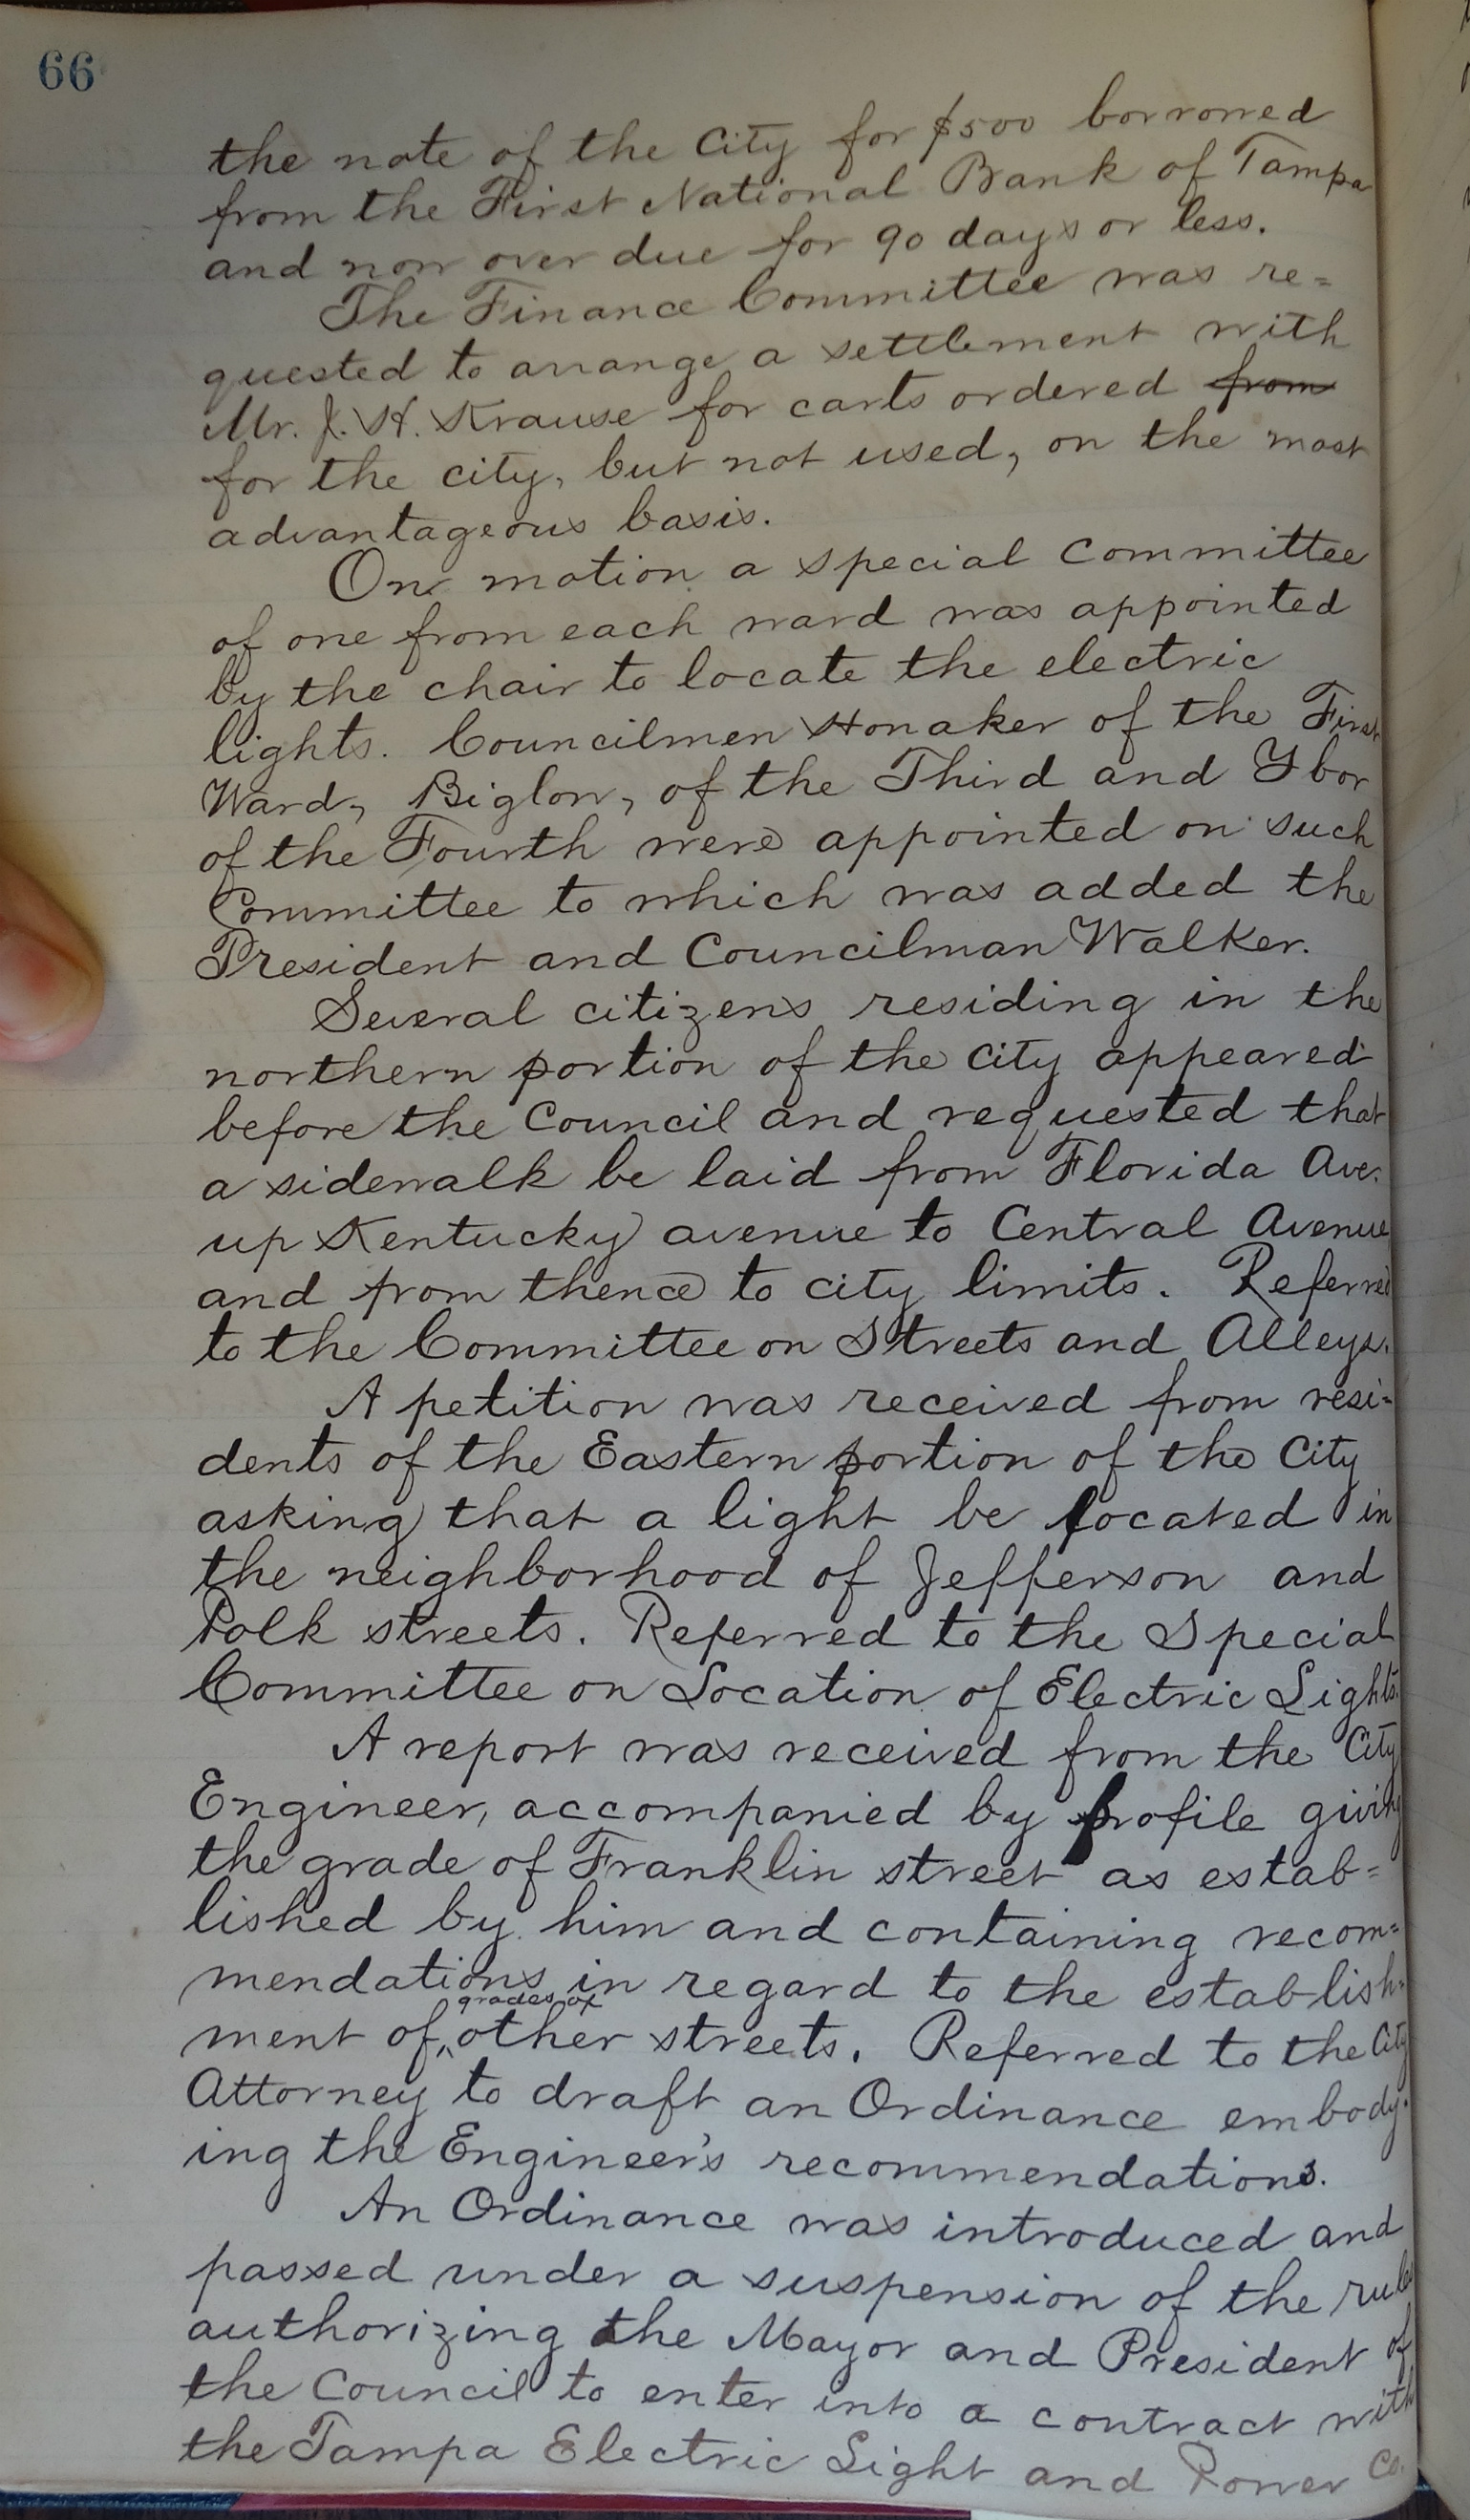 66
the note of the City for $500 borrowed
from the First National Bank of Tampa
and now over due for 90 days or less.
The Finance Committee was re=
quested to arrange a settlement with
Mr. J. H. Krause for carts ordered from
for the city, but not used, on the most
advantageous basis.
On motion a special committee
of one from each ward was appointed
by the chair to locate the electric
lights. Councilmen Honaker of the First
Ward, Biglow, of the Third and Ybor
of the Fourth were appointed on such
Committee to which was added the
President and Councilman Walker.
Several citizens residing in the
northern portion of the city appeared
before the Council and requested that
a sidewalk be laid from Florida Ave.
up Kentucky avenue to Central Avenue
and from thence to city limits. Referred
to the Committee on Streets and Alleys.
A petition was received from resi-
dents of the Eastern portion of the City
asking that a light be located in
the neighborhood of Jefferson and
Polk streets. Referred to the Special
Committee on Location of Electric Lights.
A report was received from the City
Engineer, accompanied by profile giving
the grade of Franklin street as estab=
lished by him and containing recom=
mendations in regard to the establish=
grades of
ment of ^ other streets. Referred to the City
Attorney to draft an Ordinance embody-
ing the Engineer's recommendations.
An Ordinance was introduced and
passed under a suspension of the rules
authorizing the Mayor and President of
the Council to enter into a contract with
the Tampa Electric Light and Power Co.